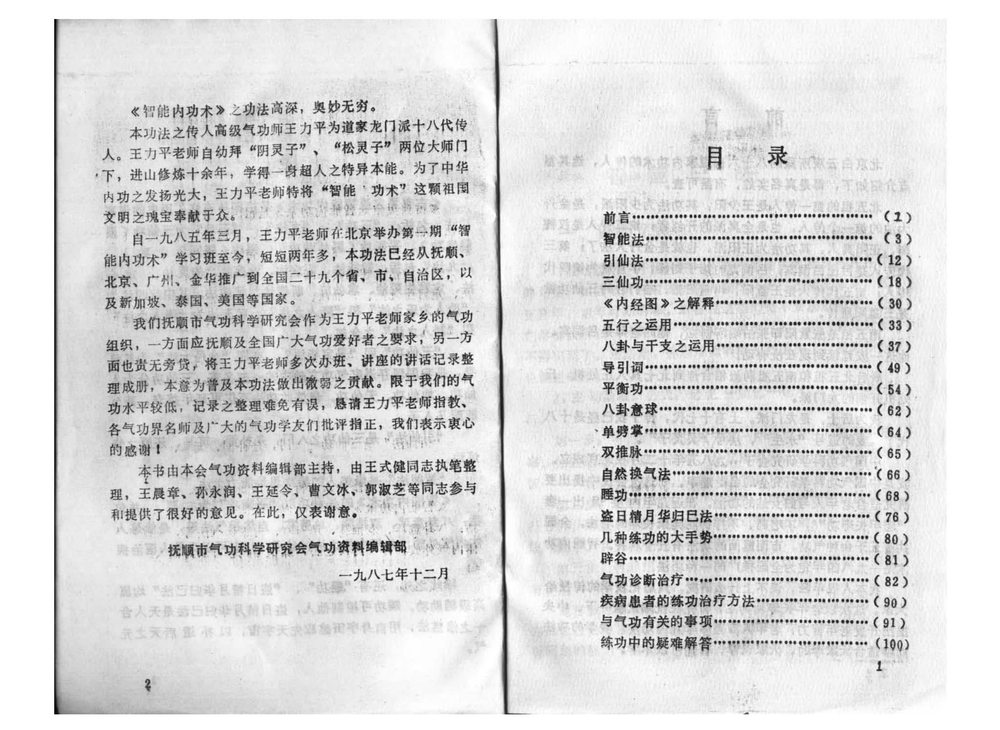 《智能内功术》之功法高深，奥妙无穷。
本功法之传人高级气功师王力平为道家龙门派十八代传
人。王力平老师自幼拜“阴灵子”、“松灵子”两位大师门
下，进山修炼十余年，学得一身超人之特异本能。为了中华
内功之发扬光大，王力平老师特将“智能 功术”这颗祖国
文明之瑰宝奉献于众。
自一九八五年三月，王力平老师在北京举办第一期“智
能内功术”学习班至今，短短两年多，本功法已经从抚顺、
北京、广州、金华推广到全国二十九个省、市、自治区，以
及新加坡、泰国、美国等国家。
我们抚顺市气功科学研究会作为王力平老师家乡的气功
组织，一方面应抚顺及全国广大气功爱好者之要求，另一方
面也责无旁贷，将王力平老师多次办班、讲座的讲话记录整
理成册，本意为普及本功法做出微弱之贡献。限于我们的气
功水平较低，记录之整理难免有误，恳请王力平老师指教、
各气功界名师及广大的气功学友们批评指正，我们表示衷心
的感谢！
本书由本会气功资料编辑部主持，由王式健同志执笔整
理，王晨章、孙永润、王延令、曹文冰、郭淑芝等同志参与
和提供了很好的意见。在此，仅表谢意。
抚顺市气功科学研究会气功资料编辑部
一九八七年十二月
2
目 录
前言……………………………（1）
智能法……………………………（3）
引仙法……………………………（12）
三仙功……………………………（18）
《内经图》之解释……………………（30）
五行之运用…………………………（33）
八卦与干支之运用……………………（37）
导引词……………………………（49）
平衡功……………………………（54）
八卦意球…………………………（62）
单劈掌……………………………（64）
双推脉……………………………（65）
自然换气法…………………………（66）
睡功………………………………（68）
盗日精月华归巳法……………………（76）
几种练功的大手势……………………（80）
辟谷………………………………（81）
气功诊断治疗…………………………（82）
疾病患者的练功治疗方法………………（90）
与气功有关的事项……………………（91）
练功中的疑难解答……………………（100）
1